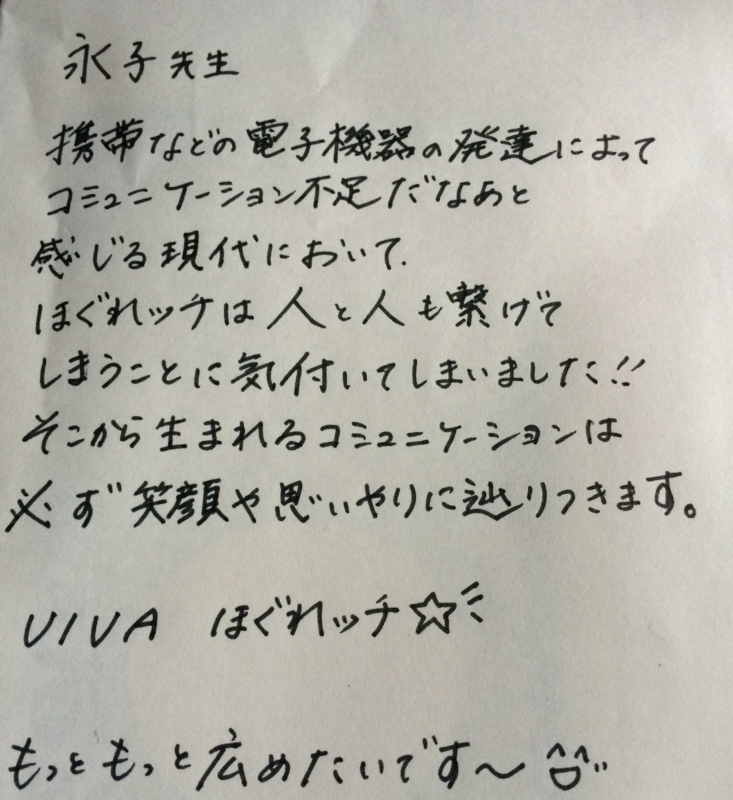 永子先生
携帯などの電子機器の発達によって
コミュニケーション不足だなあと
感じる現代において、
ほぐれッチは人と人も繋げて
しまうことに気付いてしまいました!!
そこから生まれるコミュニケーションは
必ず笑顔や思いやりに辿りつきます。
VIVA ほぐれッチ☆
もっともっと広めたいです〜